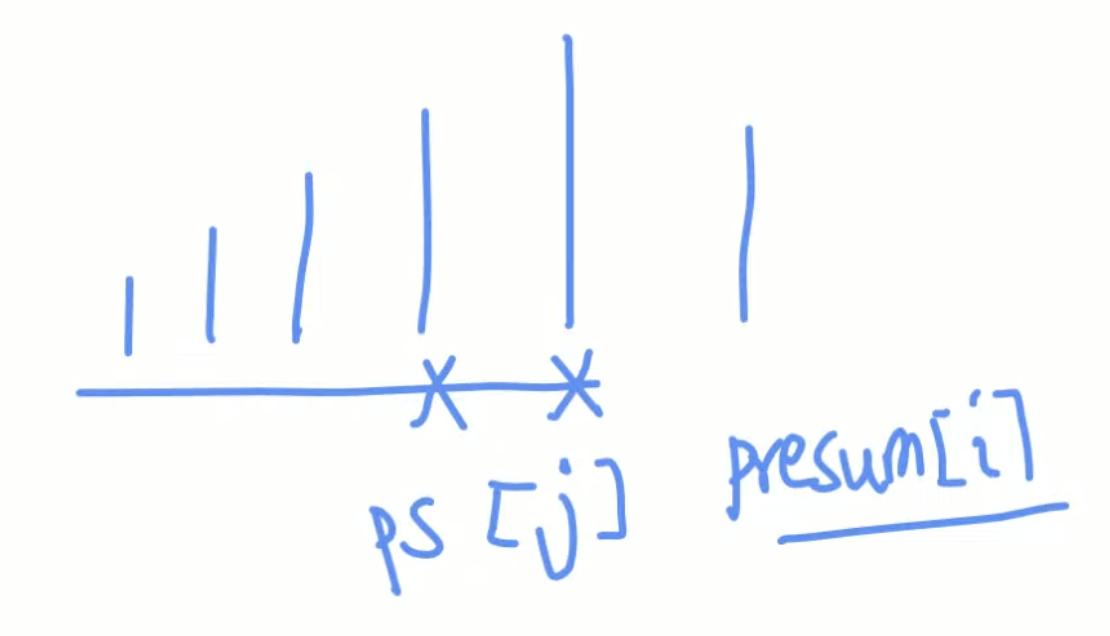 ps [j]
presum[i]